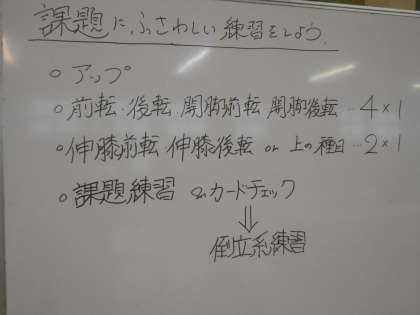 課題にふさわしい練習をしよう.
○ アップ
○ 前転・後転・開脚前転 開脚後転…4×1
○ 伸膝前転・伸膝後転 or 上の種目…2×1
○ 課題練習 &カードチェック
⇓
倒立系練習